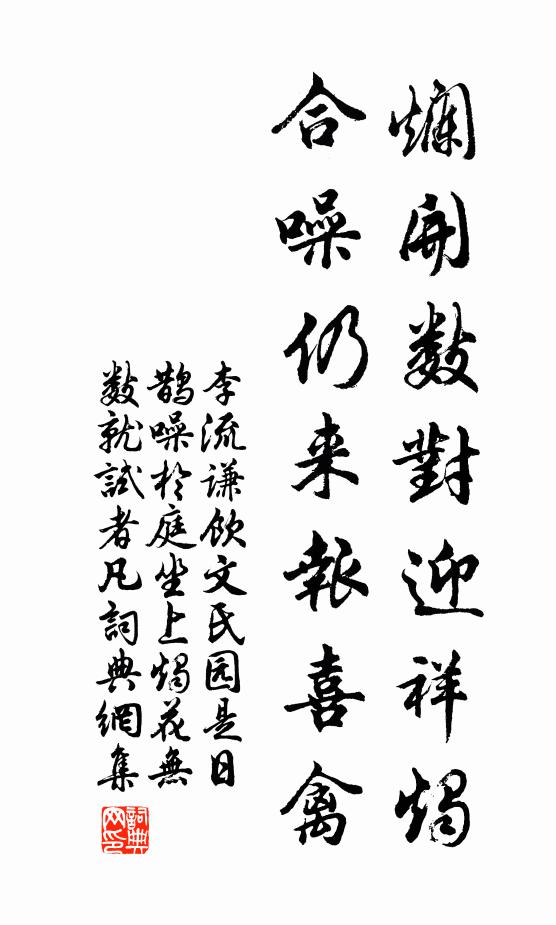 爛開数對迎祥燭
合噪仍来報喜禽
李流谦飲文民园是日
鹊噪於庭坐上燭花無
数就試者凡詞典網集
詞典网印